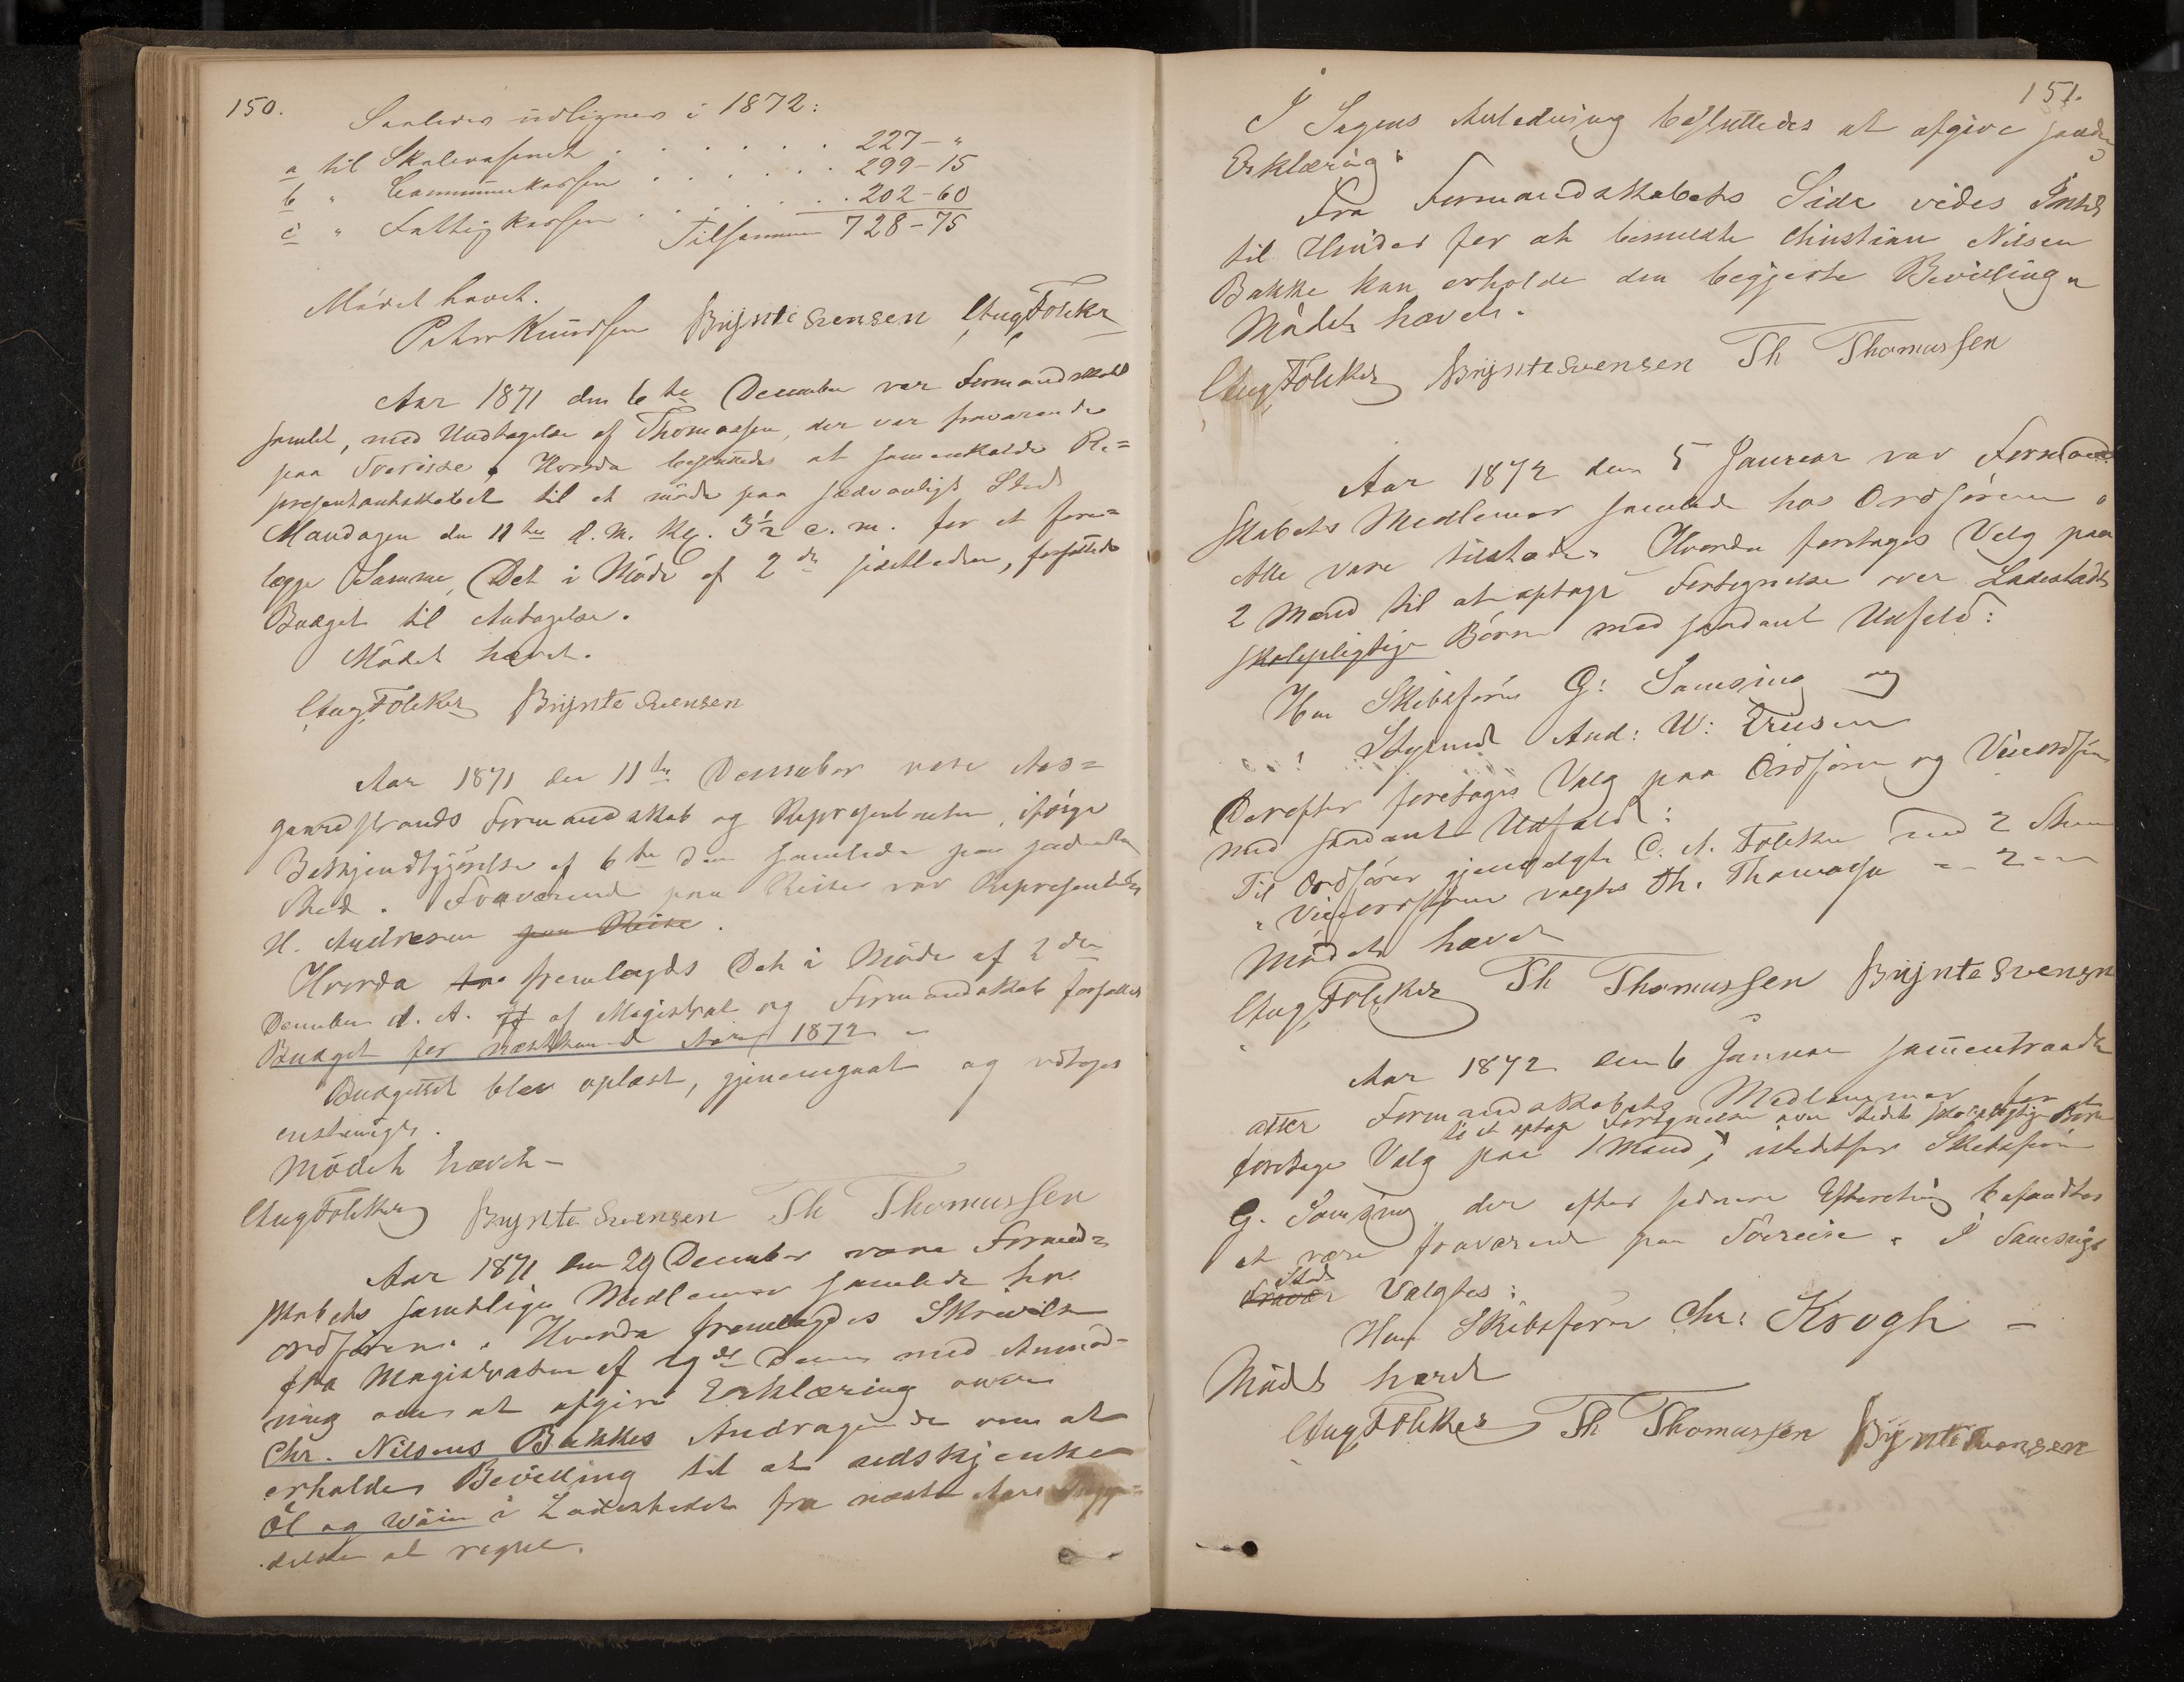 150.
Saaledes udlignes i 1872:
a til Skolevæsenet . . . . . . 227 – "
b " Communekassen . . . . . . 299 – 15
c " Fattigkassen . . . . . . 202 – 60
Tilsammen 728 – 75
Mödet hævet.
Peter Knudsen Brynte Svensen CAugFoÿcker
Aar 1871 den 6te December var Formandskabet
samlet, med Undtagelse af Thomassen, der var fraværende
paa Söreise. Hvorda besluttedes at sammenkalde Re=
presentantskabet til et möde paa sædvanligt Sted
Mandagen den 11te d. M. Kl. 3½ e. m. for at fore=
lægge Samme, Det i Möde af 2den sidstleden, forfattede
Budget til Antagelse.
Mödet hævet.
Brynte Svensen
Aar 1871 den 11te December vare Aas=
gaardstrands Formandskab og Representanter, ifölge
Bekjendtgjörelse af 6te den samlede paa sædvanlig
Sted. Fraværende paa Reiser var Representant
H. Andresen paa Reise.
Hvorda fremlagdes Det i Möde af 2den
December d. A. af Magistrat og Formandskab forfattet
Budget for næstkommende Aar 1872 –
Budgettet blev oplæst, gjennemgaaet og vedtoges
enstemigt.
Mödet hævet –
Brynte Svensen Th Thomassen
Aar 1871 den 29 December vare Formand=
skabets samtlige Medlemmer samlede hos
ordföreren. Hvorda fremlagdes Skrivelse
fra Magistraten af 19de Dennes med Anmod=
ning om at afgive Erklæring over
Chr. Nilsens Bakkes Andragende om at
erholde Bevilling til at udskjenke
Öl og Wiin i Ladestedet fra næste Aars Begyn=
delse at regne.
151.
I Sagens Anledning besluttedes at afgive saadan
Erklæring:
Fra Formandskabets Side vides Intet
til Hinder for at bemeldte Christian Nilsen
Bakke kan erholde den begjerte Bevilling.
Mödet hævet.
Brynte Svensen Th Thomassen
Aar 1872 den 5 Januar var Formand=
skabets Medlemmer samlede hos Ordföreren
Alle vare tilstede. Hvorda foretoges Valg paa
2 Mænd til at optage Fortegnelse over Ladestedets
skolepligtige Börn med saadant Udfald:
Herr Skibsförer G: Samsing og
" Styrmand And: W: Trulsen
Derefter foretoges Valg paa Ordförer og Viceordförer
med saadant Udfald:
Til Ordförer gjenvalgtes C. A. Foÿcker med 2 Stem
" Viceordförer valgtes Th. Thomassen " 2 "
Mödet hævet
Th Thomassen Brynte Svensen
Aar 1872 den 6 Januar sammentraadte
atter Formandskabets Medlemmer for at
til at optage Fortegnelse over Stedets skolepligtige Börn
foretage Valg paa 1 Mand, istedetfor Skibsförer
G. Samsing, der efter senere Efterretning befandtes
at være fraværende paa Söreise. I Samsings
Sted
Fravær Valgtes:
Herr Skibsförer Chr: Krogh –
Mödet hævet
Th Thomassen Brynte Svensen